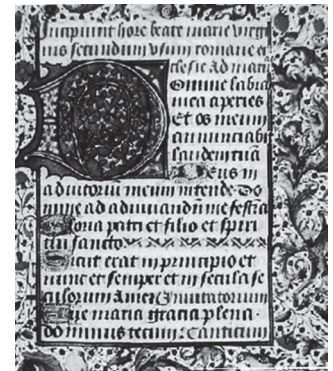 Incipiunt hore beate marie virgi
nis secundum usum romane ec
clesie Ad matu
Domine labia
mea aperies
Et os meum
annunciabit
laudem tuã
Deus in
adiutoriũ meum intende Do
mine ad adiuuandũ me festĩa
Gloria patri et filio et spiri
tui sancto
Sicut erat in principio et
nunc et semper et in secula se
culorum Amen Inuitatorium
Aue maria gracia plena
dominus tecum Canticum